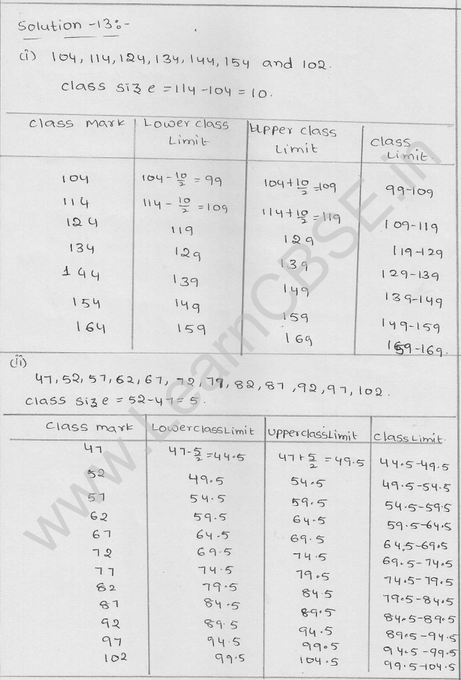 Solution -13:-
(i) 104, 114, 124, 134, 144, 154 and 102.
class size = 114 - 104 = 10.
class mark | Lower class Limit | Upper class Limit | class Limit
104 | 104 - 10/2 = 99 | 104 + 10/2 = 109 | 99-109
114 | 114 - 10/2 = 109 | 114 + 10/2 = 119 | 109-119
124 | 119 | 129 | 119-129
134 | 129 | 139 | 129-139
144 | 139 | 149 | 139-149
154 | 149 | 159 | 149-159
164 | 159 | 169 | 159-169.
(ii)
47, 52, 57, 62, 67, 72, 77, 82, 87, 92, 97, 102.
class size = 52-47 = 5.
class mark | Lower class Limit | Upper class Limit | class Limit
47 | 47-5/2 = 44.5 | 47 + 5/2 = 49.5 | 44.5-49.5
52 | 49.5 | 54.5 | 49.5-54.5
57 | 54.5 | 59.5 | 54.5-59.5
62 | 59.5 | 64.5 | 59.5-64.5
67 | 64.5 | 69.5 | 64.5-69.5
72 | 69.5 | 74.5 | 69.5-74.5
77 | 74.5 | 79.5 | 74.5-79.5
82 | 79.5 | 84.5 | 79.5-84.5
87 | 84.5 | 89.5 | 84.5-89.5
92 | 89.5 | 94.5 | 89.5-94.5
97 | 94.5 | 99.5 | 94.5-99.5
102 | 99.5 | 104.5 | 99.5-104.5
www.LearnCBSE.in